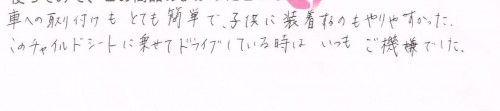 車への取り付けも とても簡単で、子供に装着するのもやりやすかった。
このチャイルドシートに乗せてドライブしている時は いつも ご機嫌でした。